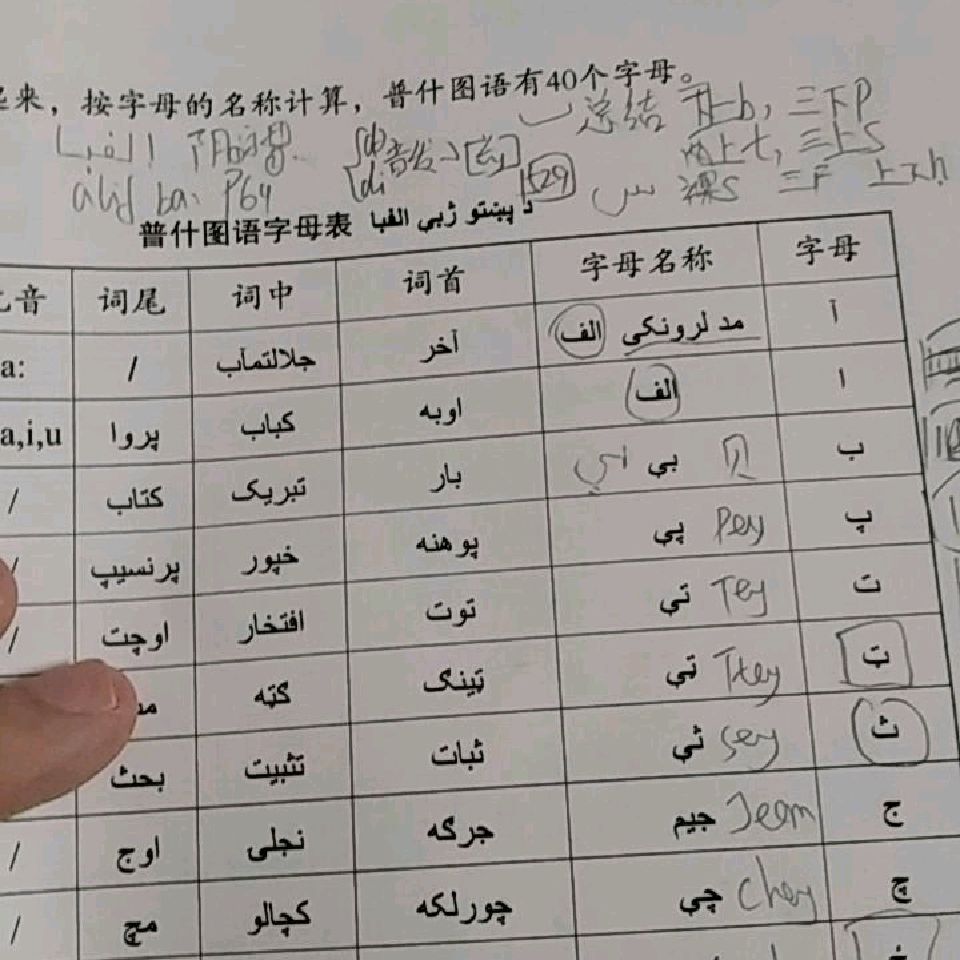 来，按字母的名称计算，普什图语有40个字母。
总结 下一b, 三下P
两上t, 三上S
alif ba: P64
1529
普什图语字母表 د پښتو ژبې الفبا
音 词尾 词中 词首 字母名称 字母
a: / جلالتمآب آخر مد لرونکی الف آ
a,i,u پروا کباب اوبه الف ا
/ کتاب تبریک بار بې ب
/ پرنسیپ خپور پوهنه پې Pey پ
/ اوچت افتخار توت تې Tey ت
ګټه ټینګ ټې Ttey ټ
بحث تثبیت ثبات ثې sey ث
/ اوج نجلی جرګه جیم Jeem ج
/ مچ کچالو چورلکه چې Chey چ